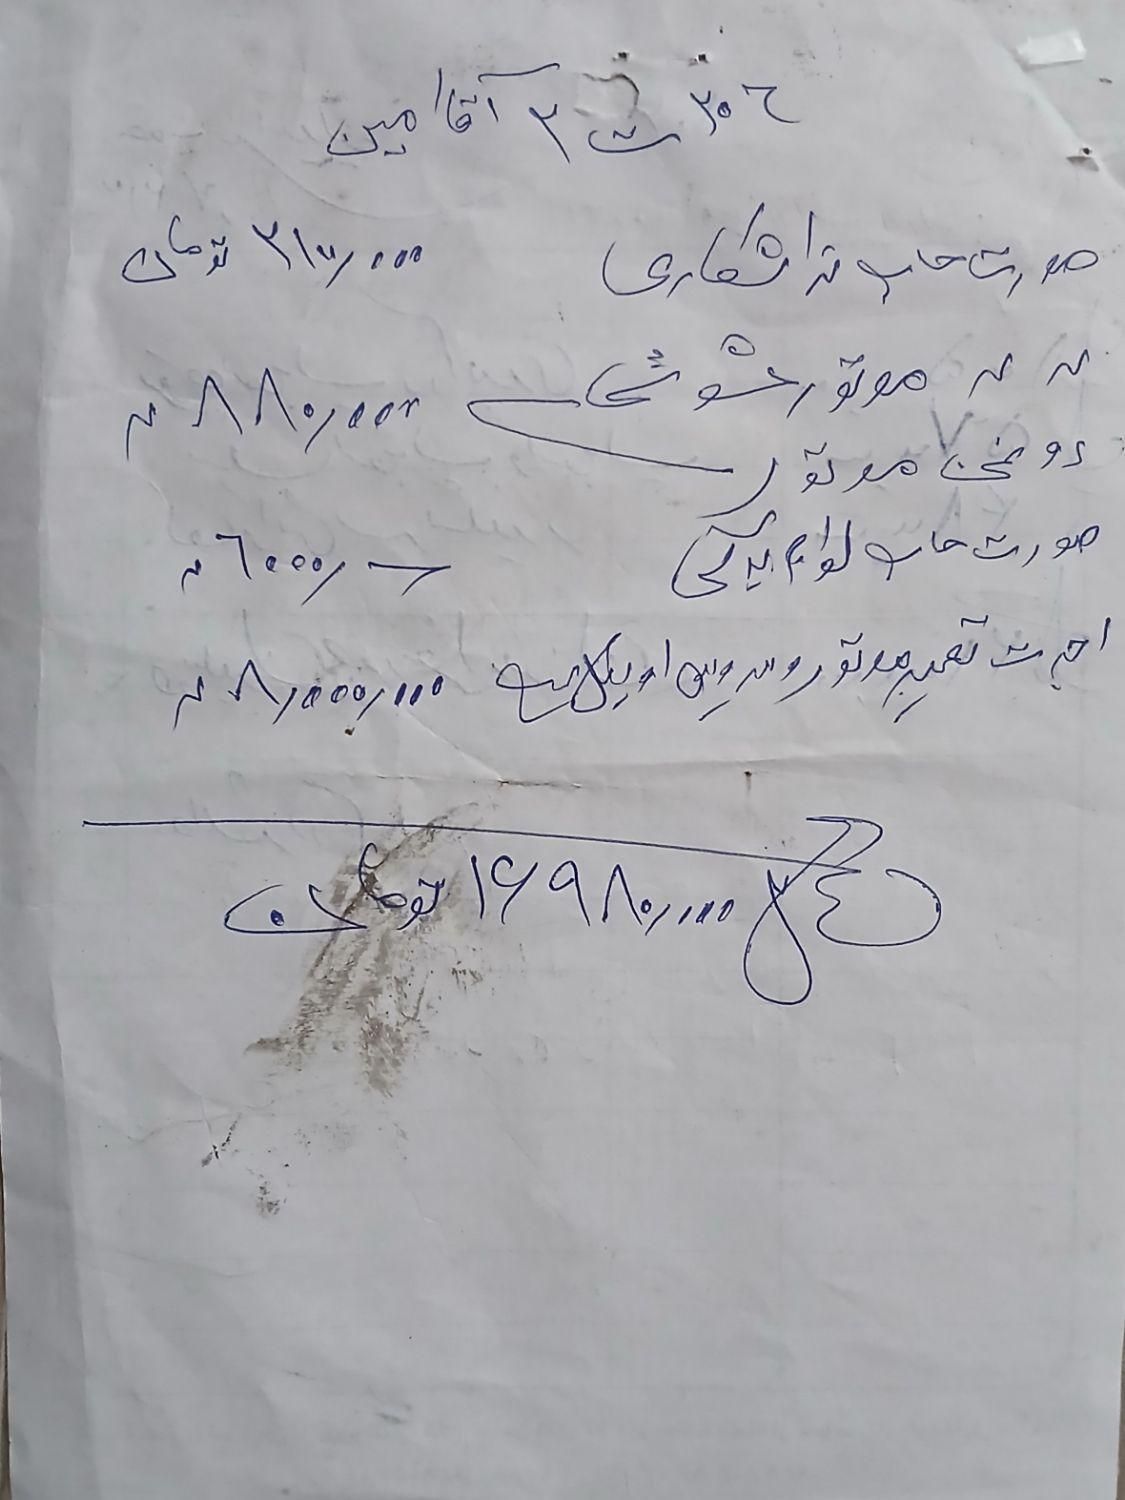 ۲۰۶ ت ۲ آقا امین
صورت حساب تراشکاری ۲۱۷۰/۰۰۰ تومان
" " موتور شوشی ۸۸۰/۰۰۰ "
روغن موتور
صورت حساب لوازم یدکی ۶۰۰۰/۰۰۰ "
اجرت تعمیر موتور و سرویس ۸/۰۰۰/۰۰۰ "
جمع کل ۱۶۹۸۰/۰۰۰ تومان